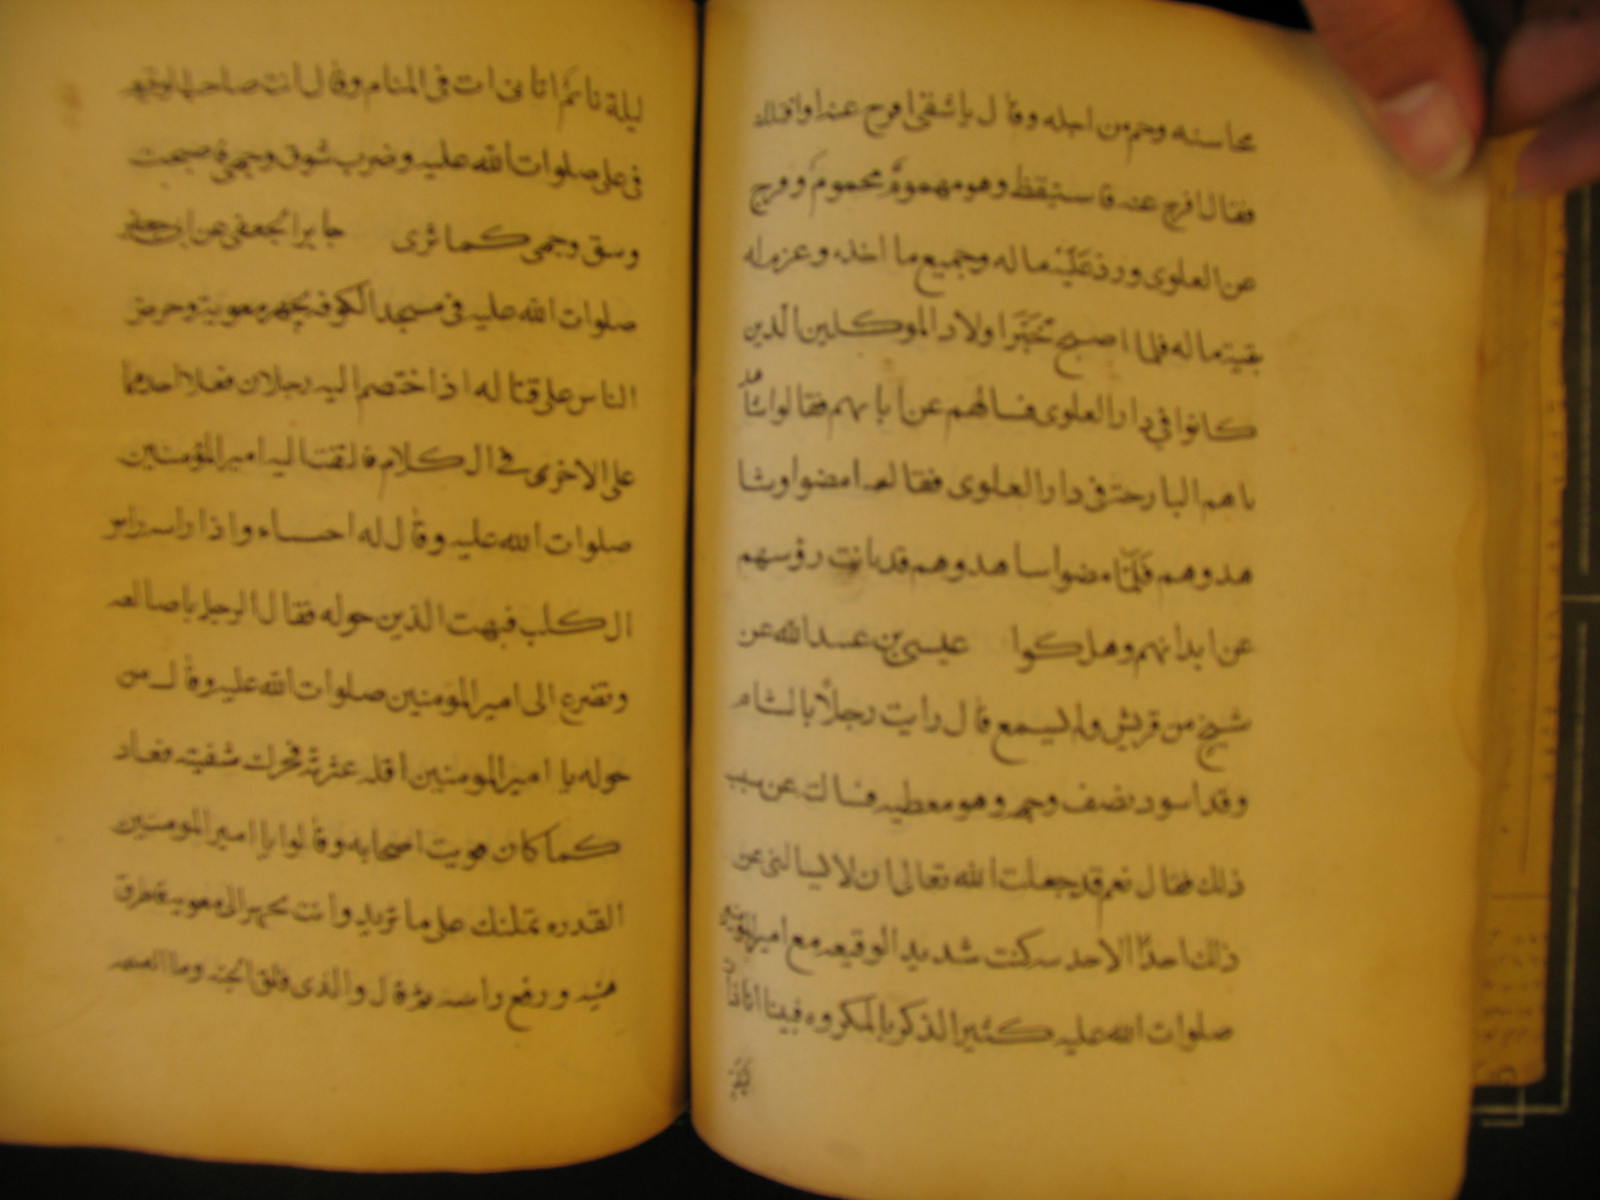 محاسنه وحرم من اجله وقال يا شقى افرج عنه او اقتلك
فقال افرج عنه فاستيقظ وهو مهموم محموم وفرج
عن العلوى ورد عليه ماله وجميع ما اخذه وعزم له
بقية ماله فلما اصبح تخبرا ولاد الموكلين الذين
كانوا في دار العلوى فسالهم عن ابايهم فقالوا شا
باهم البارحة فى دار العلوى فقال لهم امضوا وشا
هدوهم فلما مضوا ساهدوهم قد بانت رؤسهم
عن ابدانهم وهلكوا عيسى بن عبد الله عن
شيخ من قريش ولم يسمع قال رايت رجلا بالشام
وقد اسود نصف وجهه وهو مغطيه فسالت عن سبب
ذلك فقال نعم قد جعلت الله تعالى ان لا يسالنى عن
ذلك احدا الا حد سه كنت شديد الوقيعه مع امير المومنين
صلوات الله عليه كثير الذكر بالمكروه فبينا انا ذا
ليلة نائم اتانى ات فى المنام وقال انت صاحب الوقيعه
فى على صلوات الله عليه وضرب شق وجهى فاصبحت
وسق وجهى كما ترى جابر الجعفى عن ابى جعفر
صلوات الله عليه فى مسجد الكوفه يجهر معوية وحرض
الناس على قتاله اذ اختصم اليه رجلان فعلا احدهما
على الاخرى فى الكلام فالتفت اليه امير المؤمنين
صلوات الله عليه وقال له احساء واذا راسه راس
الكلب فبهت الذين حوله فقال الرجل باصابعه
وتضرع الى امير المومنين صلوات الله عليه وقال من
حوله يا امير المومنين اقله عثرته فحرك شفيته فعاد
كما كان فوثبت اصحابه وقالوا يا امير المومنين
القدره تمكنك على ما تريد وانت تجهز الى معوية فاطرق
هنيه ورفع راسه وقال والذى فلق الحبه وبرا النسمه